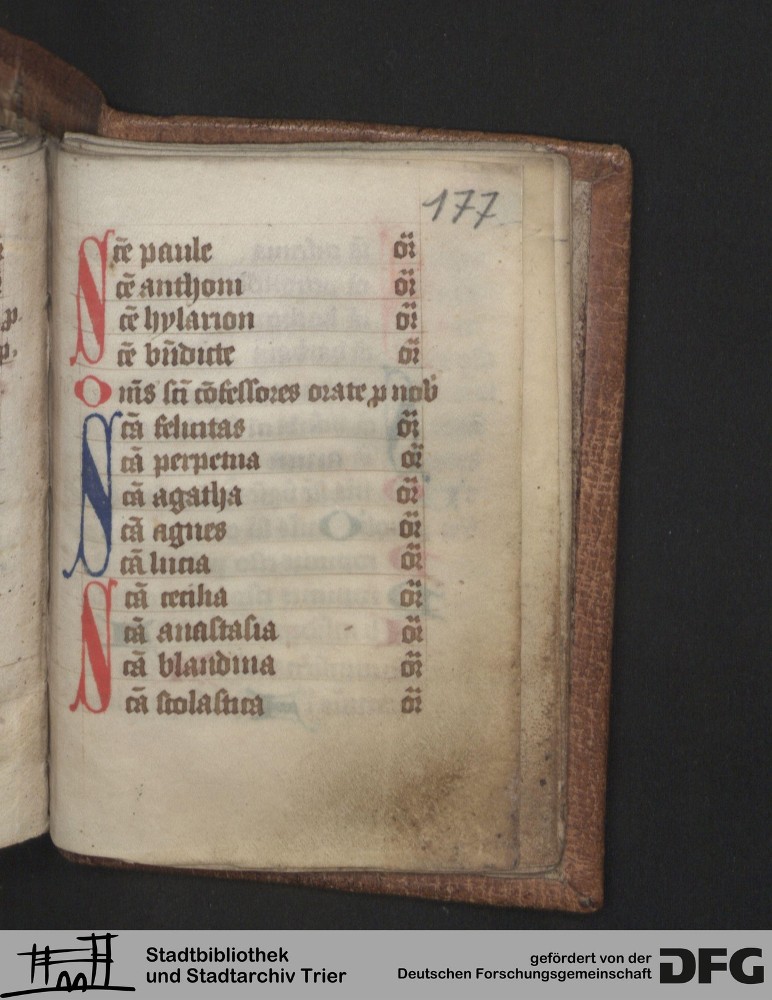 177
Scē paule or̄
Scē anthoni or̄
Scē hylarion or̄
Scē bn̄dicte or̄
Om̄s sc̄i cōfessores orate ꝓ nob
Scā felicitas or̄
Scā perpetua or̄
Scā agatha or̄
Scā agnes or̄
Scā lucia or̄
Scā cecilia or̄
Scā anastasia or̄
Scā blandina or̄
Scā scolastica or̄
Stadtbibliothek
und Stadtarchiv Trier
gefördert von der
Deutschen Forschungsgemeinschaft
DFG